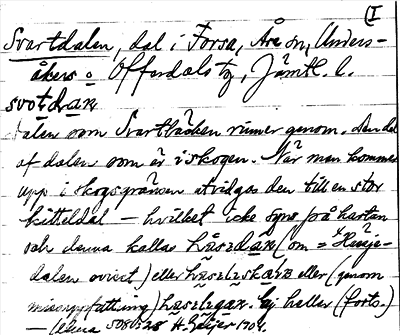 (I
Svartdalen, dal i Forsa, Åre sn, Unders-
åkers o Offerdals tg, Jämtl. l.
svo̱tda̱n
Dalen som Svartbäcken rinner genom. Den del
af dalen som är i skogen. När man kommer
upp i skogsgränsen utvidgas den till en stor
kitteldal – hvilket icke syns på kartan
och denna kallas (om = Hussje-
dalen ovisst) eller eller (genom
missuppfattning) Ej heller (forts.)
– 1904.